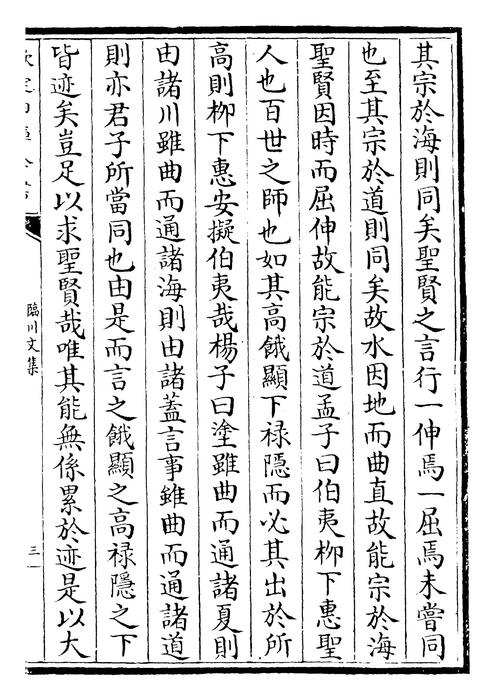 其宗於海則同矣聖賢之言行一伸焉一屈焉未嘗同
也至其宗於道則同矣故水因地而曲直故能宗於海
聖賢因時而屈伸故能宗於道孟子曰伯夷栁下惠聖
人也百世之師也如其高餓顯下禄隱而必其出於所
高則栁下惠安擬伯夷哉楊子曰塗雖曲而通諸夏則
由諸川雖曲而通諸海則由諸蓋言事雖曲而通諸道
則亦君子所當同也由是而言之餓顯之高禄隱之下
皆迹矣豈足以求聖賢哉唯其能無係累於迹是以大
臨川文集
三